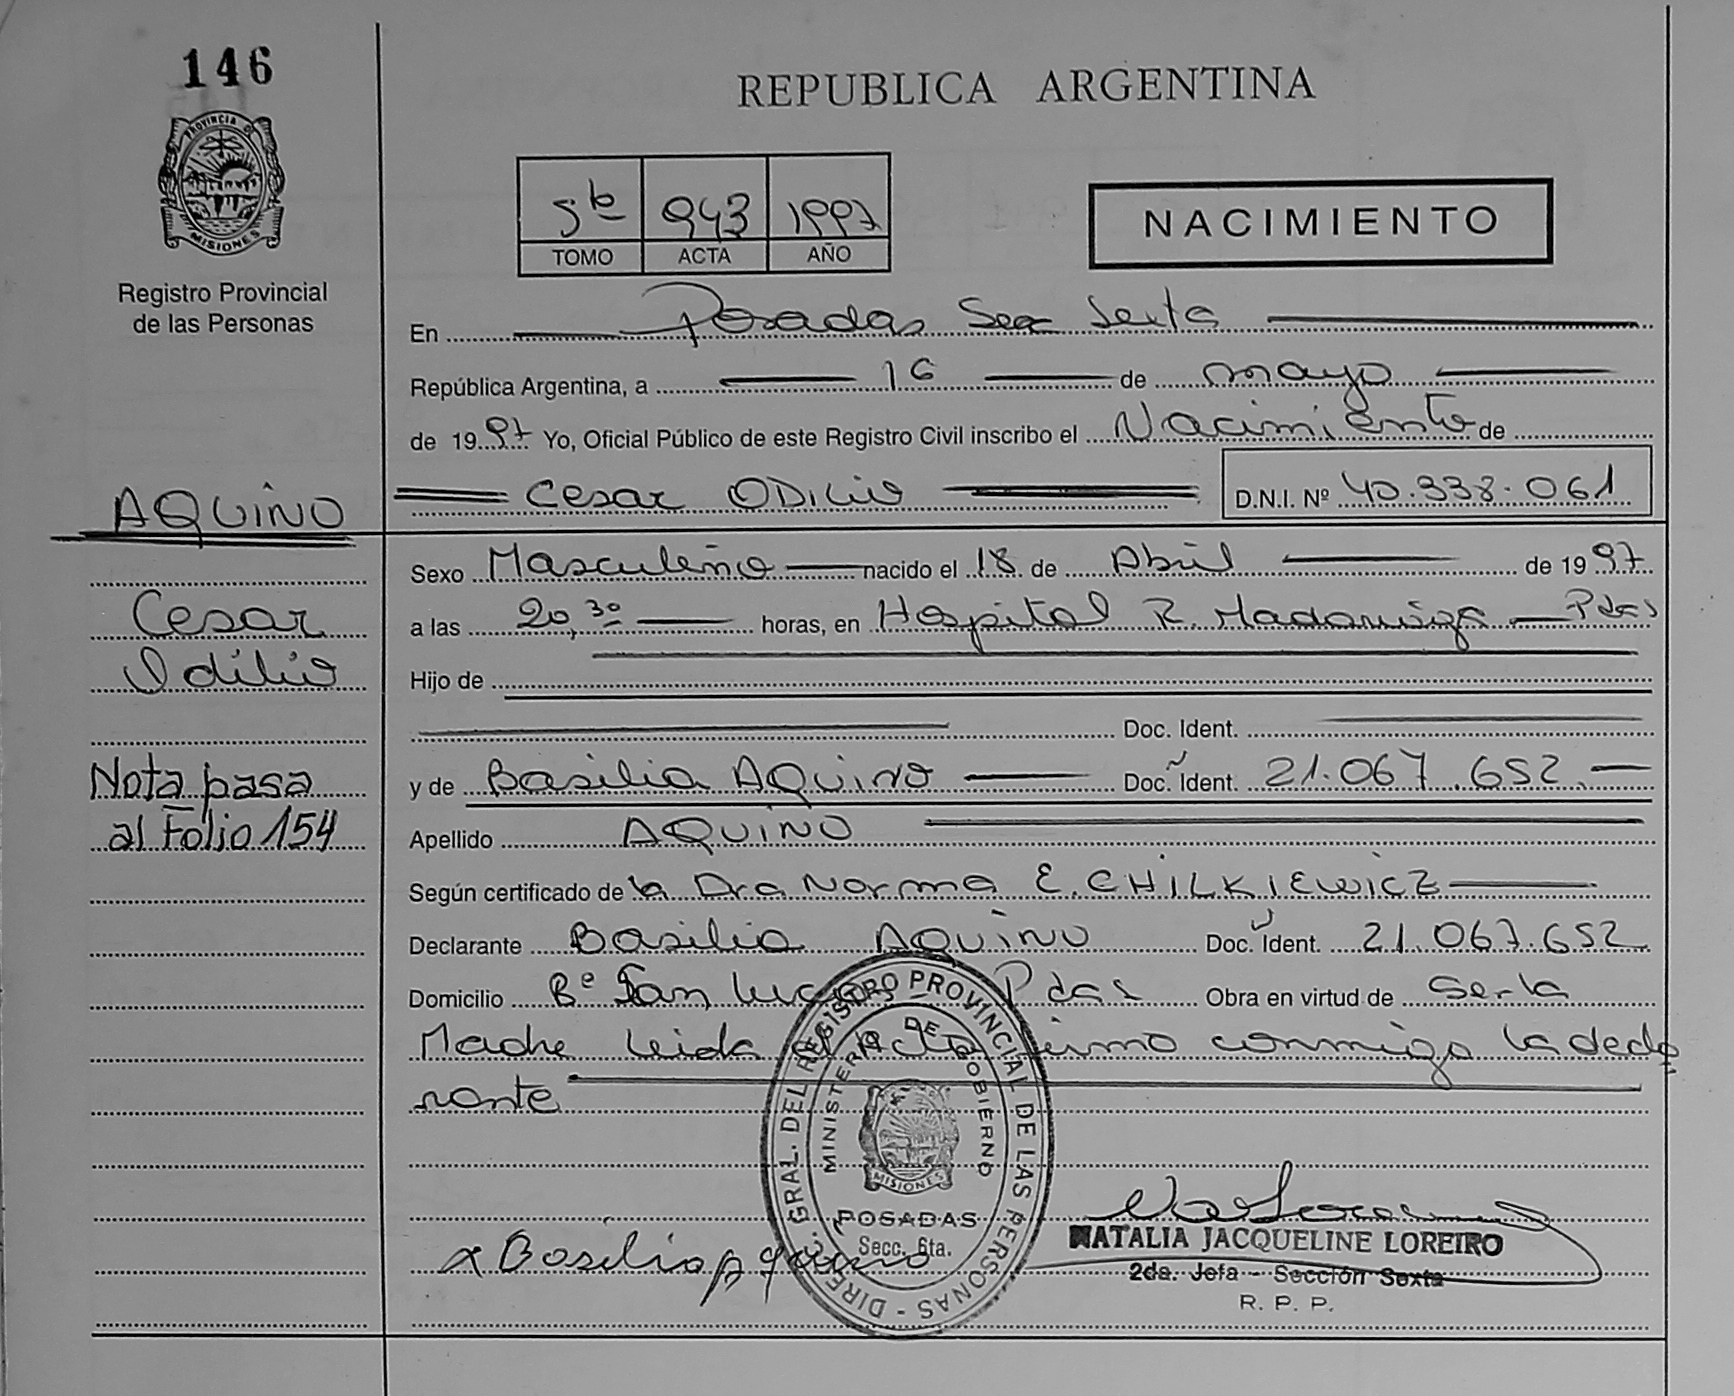 146
REPUBLICA ARGENTINA
PROVINCIA DE
MISIONES
Registro Provincial
de las Personas
5to 943 1997
TOMO ACTA AÑO
NACIMIENTO
En Posadas Sec Sexta
República Argentina, a 16 de mayo
de 1997 Yo, Oficial Público de este Registro Civil inscribo el Nacimiento de
Cesar ODILIO D.N.I. Nº 40.338.061
AQUINO
Cesar
Odilio
Nota pasa
al Folio 154
Sexo Masculino nacido el 18 de Abril de 1997
a las 20,30 horas, en Hospital R. Madariaga Pdas
Hijo de
Doc. Ident.
y de Basilia AQUINO Doc. Ident. 21.067.652
Apellido AQUINO
Según certificado de la Dra Norma E. CHILKIEWICZ
Declarante Basilia AQUINO Doc. Ident. 21.067.652
Domicilio Bº San Lucas Pdas Obra en virtud de ser la
Madre leida el Acta firma conmigo la decla
rante
DIREC. GRAL. DEL REGISTRO PROVINCIAL DE LAS PERSONAS
MINISTERIO DE GOBIERNO
MISIONES
POSADAS
Secc. 6ta.
x Basilia Aquino
NATALIA JACQUELINE LOREIRO
2da. Jefa - Sección Sexta
R. P. P.